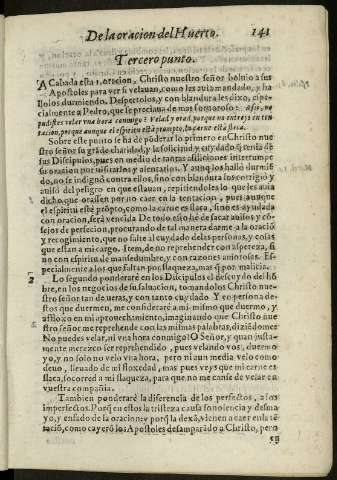 De la oracion del Huerto. 141
Tercero punto.
ACabada esta oracion, Christo nuestro señor boluio a sus
Apostoles para ver si velauan, como les auia mandado, y ha
llolos durmiendo. Despertolos, y con blandura les dixo, espe-
cialmente a Pedro, que se preciaua de mas feruoroso: Assi, no
pudistes velar vna hora conmigo? Velad, y orad, porque no entreys en ten
tacion, porque aunque el espiritu està prompto, la carne està flaca.
Sobre este punto se ha de pōderar lo primero en Christo nue
stro señor su grāde charidad, y la solicitud y cuydado q̄ tenia de
sus Dicipulos, pues en medio de tantas afliciones interrumpe
su oracion por visitarlos y alentarlos. Y aunq̄ los hallò durmiē
do, no se indignò contra ellos, sino con blandura los corrigiò y
auisò del peligro en que estauan, repitiendoles lo que les auia
dicho, que orassen por no caer en la tentacion, pues aunque
el espiritu estè prōpto, como la carne es flaca, sino es ayudada
con oracion, serà vencida. De todo esto he de sacar auisos y cō-
sejos de perfeccion, procurando de tal manera darme a la oraciō
y recogimiento, que no falte al cuydado de las personas, y cosas
que estan a mi cargo. Item, de no reprehender con aspereza, si
no con espiritu de mansedumbre, y con razones amorosas. Es-
pecialmente a los que faltan por flaqueza, mas q̄ por malicia.
2 Lo segundo ponderarè en los Discipulos el descuydo del hō
bre, en los negocios de su saluacion, tomandolos Christo nue-
stro señor tan de veras, y con tanto cuydado. Y en persona de-
stos que duermen, me considerarè a mi mismo que duermo, y
afloxo en mi aprouechamiento, imaginando que Christo nue
stro señor me reprehende con las mismas palabras, diziēdome:
No puedes velar, ni vna hora conmigo? O Señor, y quan justa-
mente merezco ser reprehendido, pues velando vos, duermo
yo, y no solo no velo vna hora, pero ni aun media velo como
deuo, lleuado de mi floxedad, mas pues veys que mi carne es
flaca, socorred a mi flaqueza, para que no me canse de velar en
vuestra compañia.
Tambien ponderarè la diferencia de los perfectos, a los
imperfectos. Porq̄ en estos la tristeza causa sonolencia y desma
yo, y enfado de la oracion: y porq̄ la dexā, vienen a caer en la tē
taciō, como cayerō los Apostoles desamparādo a Christo, pero